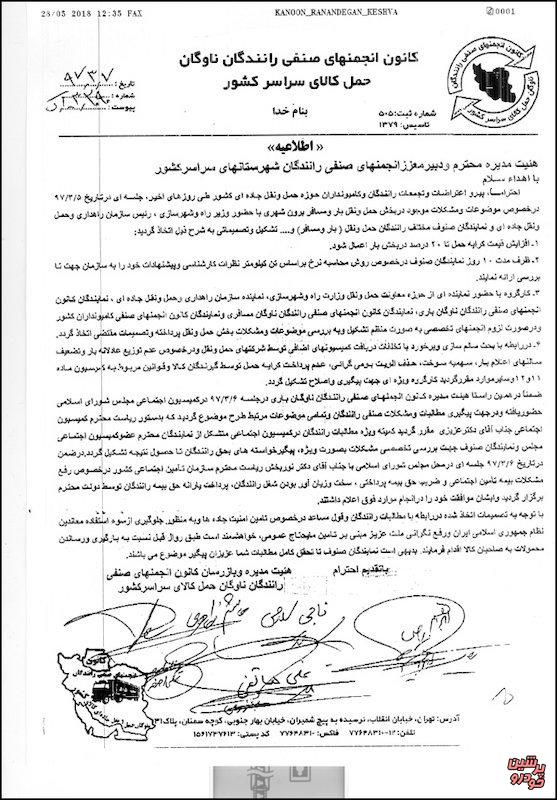 28/05 2018 12:35 FAX
KANOON_RANANDEGAN_KESHVA
0001
کانون انجمنهای صنفی رانندگان ناوگان
حمل کالای سراسر کشور
بنام خدا
تاریخ:
شماره:
پیوست:
شماره ثبت: ۵۰۵
تاسیس: ۱۳۷۹
« اطلاعیه»
هئیت مدیره محترم ودبیرمعززانجمنهای صنفی رانندگان شهرستانهای سراسرکشور
با اهداء سلام
احتراماً، پیرو اعتراضات وتجمعات رانندگان وکامیونداران حوزه حمل ونقل جاده ای کشور طی روزهای اخیر، جلسه ای درتاریخ ۹۷/۳/۵
درخصوص موضوعات ومشکلات موجود دربخش حمل ونقل بار ومسافر برون شهری با حضور وزیر راه وشهرسازی ، رئیس سازمان راهداری وحمل
ونقل جاده ای و نمایندگان صنوف مختلف رانندگان حمل ونقل (بار ومسافر) و.... تشکیل وتصمیماتی به شرح ذیل اتخاذ گردید:
۱.افزایش قیمت کرایه حمل تا ۲۰ درصد دربخش بار اعمال شود.
۲. ظرف مدت ۱۰ روز نمایندگان صنوف درخصوص روش محاسبه نرخ براساس تن کیلومتر نظرات کارشناسی وپیشنهادات خود را به سازمان جهت تا
بررسی ارائه نمایند.
۳.کارگروه با حضور نماینده ای از حوزه معاونت حمل ونقل وزارت راه وشهرسازی، نماینده سازمان راهداری وحمل ونقل جاده ای ، نمایندگان کانون
انجمنهای صنفی رانندگان ناوگان باری، نمایندگان کانون انجمنهای صنفی رانندگان ناوگان مسافری ونمایندگان کانون انجمنهای صنفی کامیونداران کشور
ودرصورت لزوم انجمنهای تخصصی به صورت منظم تشکیل وبه بررسی موضوعات ومشکلات بخش حمل ونقل پرداخته وتصمیمات مقتضی اتخاذ گردد.
۴. دررابطه با بحث سالم سازی وبرخورد با تخلفات دریافت کمیسیونهای اضافی توسط شرکتهای حمل ونقل ودرخصوص عدم توزیع عادلانه بار وتضعیف
سالنهای اعلام بار، سهمیه سوخت، حذف الویت بومی گرائی، عدم پرداخت کرایه حمل توسط گیرندگان کالا وقوانین مربوط به کمیسیون ماده
۱۱و۱۲وسایرموارد مقررگردید کارگروه ویژه ای جهت پیگیری واصلاح تشکیل گردد.
ضمناً درهمین راستا هیئت مدیره کانون انجمنهای صنفی رانندگان ناوگان باری درجلسه ۹۷/۳/۶ درکمیسیون اجتماعی مجلس شورای اسلامی
حضوریافته ودرجهت پیگیری مطالبات ومشکلات صنفی رانندگان وتمامی موضوعات مرتبط طرح موضوع گردید که بدستور ریاست محترم کمیسیون
اجتماعی جناب آقای دکترعزیزی مقرر گردید کمیته ویژه مطالبات رانندگان درکمیسیون اجتماعی متشکل از نمایندگان محترم عضوکمیسیون اجتماعی
مجلس ونمایندگان صنوف جهت بررسی تخصصی مشکلات بصورت ویژه، پیگیرخواسته های بحق رانندگان تا حصول نتیجه تشکیل گردد.درضمن
درتاریخ ۹۷/۳/۶ جلسه ای درمحل مجلس شورای اسلامی با جناب آقای دکتر نوربخش ریاست محترم سازمان تأمین اجتماعی کشور درخصوص رفع
مشکلات بیمه تأمین اجتماعی و ضریب حق بیمه پرداختی ، سخت وزیان آور بودن شغل رانندگان، پرداخت یارانه حق بیمه رانندگان توسط دولت محترم
برگزار گردید وایشان موافقت خود را درانجام موارد فوق اعلام داشتند.
با توجه به تصمیمات اتخاذ شده دررابطه با مطالبات رانندگان وقول مساعد درخصوص تأمین امنیت جاده ها وبه منظور جلوگیری ازسوء استفاده معاندین
نظام جمهوری اسلامی ایران ورفع نگرانی ملت عزیز مبنی بر تامین مایحتاج عمومی، خواهشمند است طبق روال قبل نسبت به بارگیری ورساندن
محمولات به صاحبان کالا اقدام فرمایند. بدیهی است نمایندگان صنوف تا تحقق کامل مطالبات شما عزیزان پیگیر موضوع می باشند.
باتقدیم احترام
هئیت مدیره وبازرسان کانون انجمنهای صنفی
رانندگان ناوگان حمل کالای سراسرکشور
آدرس: تهران، خیابان انقلاب، نرسیده به پیچ شمیران، خیابان بهار جنوبی، کوچه سمنان، پلاک ۳۱
تلفن: ۱۲-۷۷۶۴۸۳۱۰ فاکس: ۷۷۶۴۸۳۱۰ کد پستی: ۱۵۶۱۷۳۷۶۱۳
پرشین خودرو